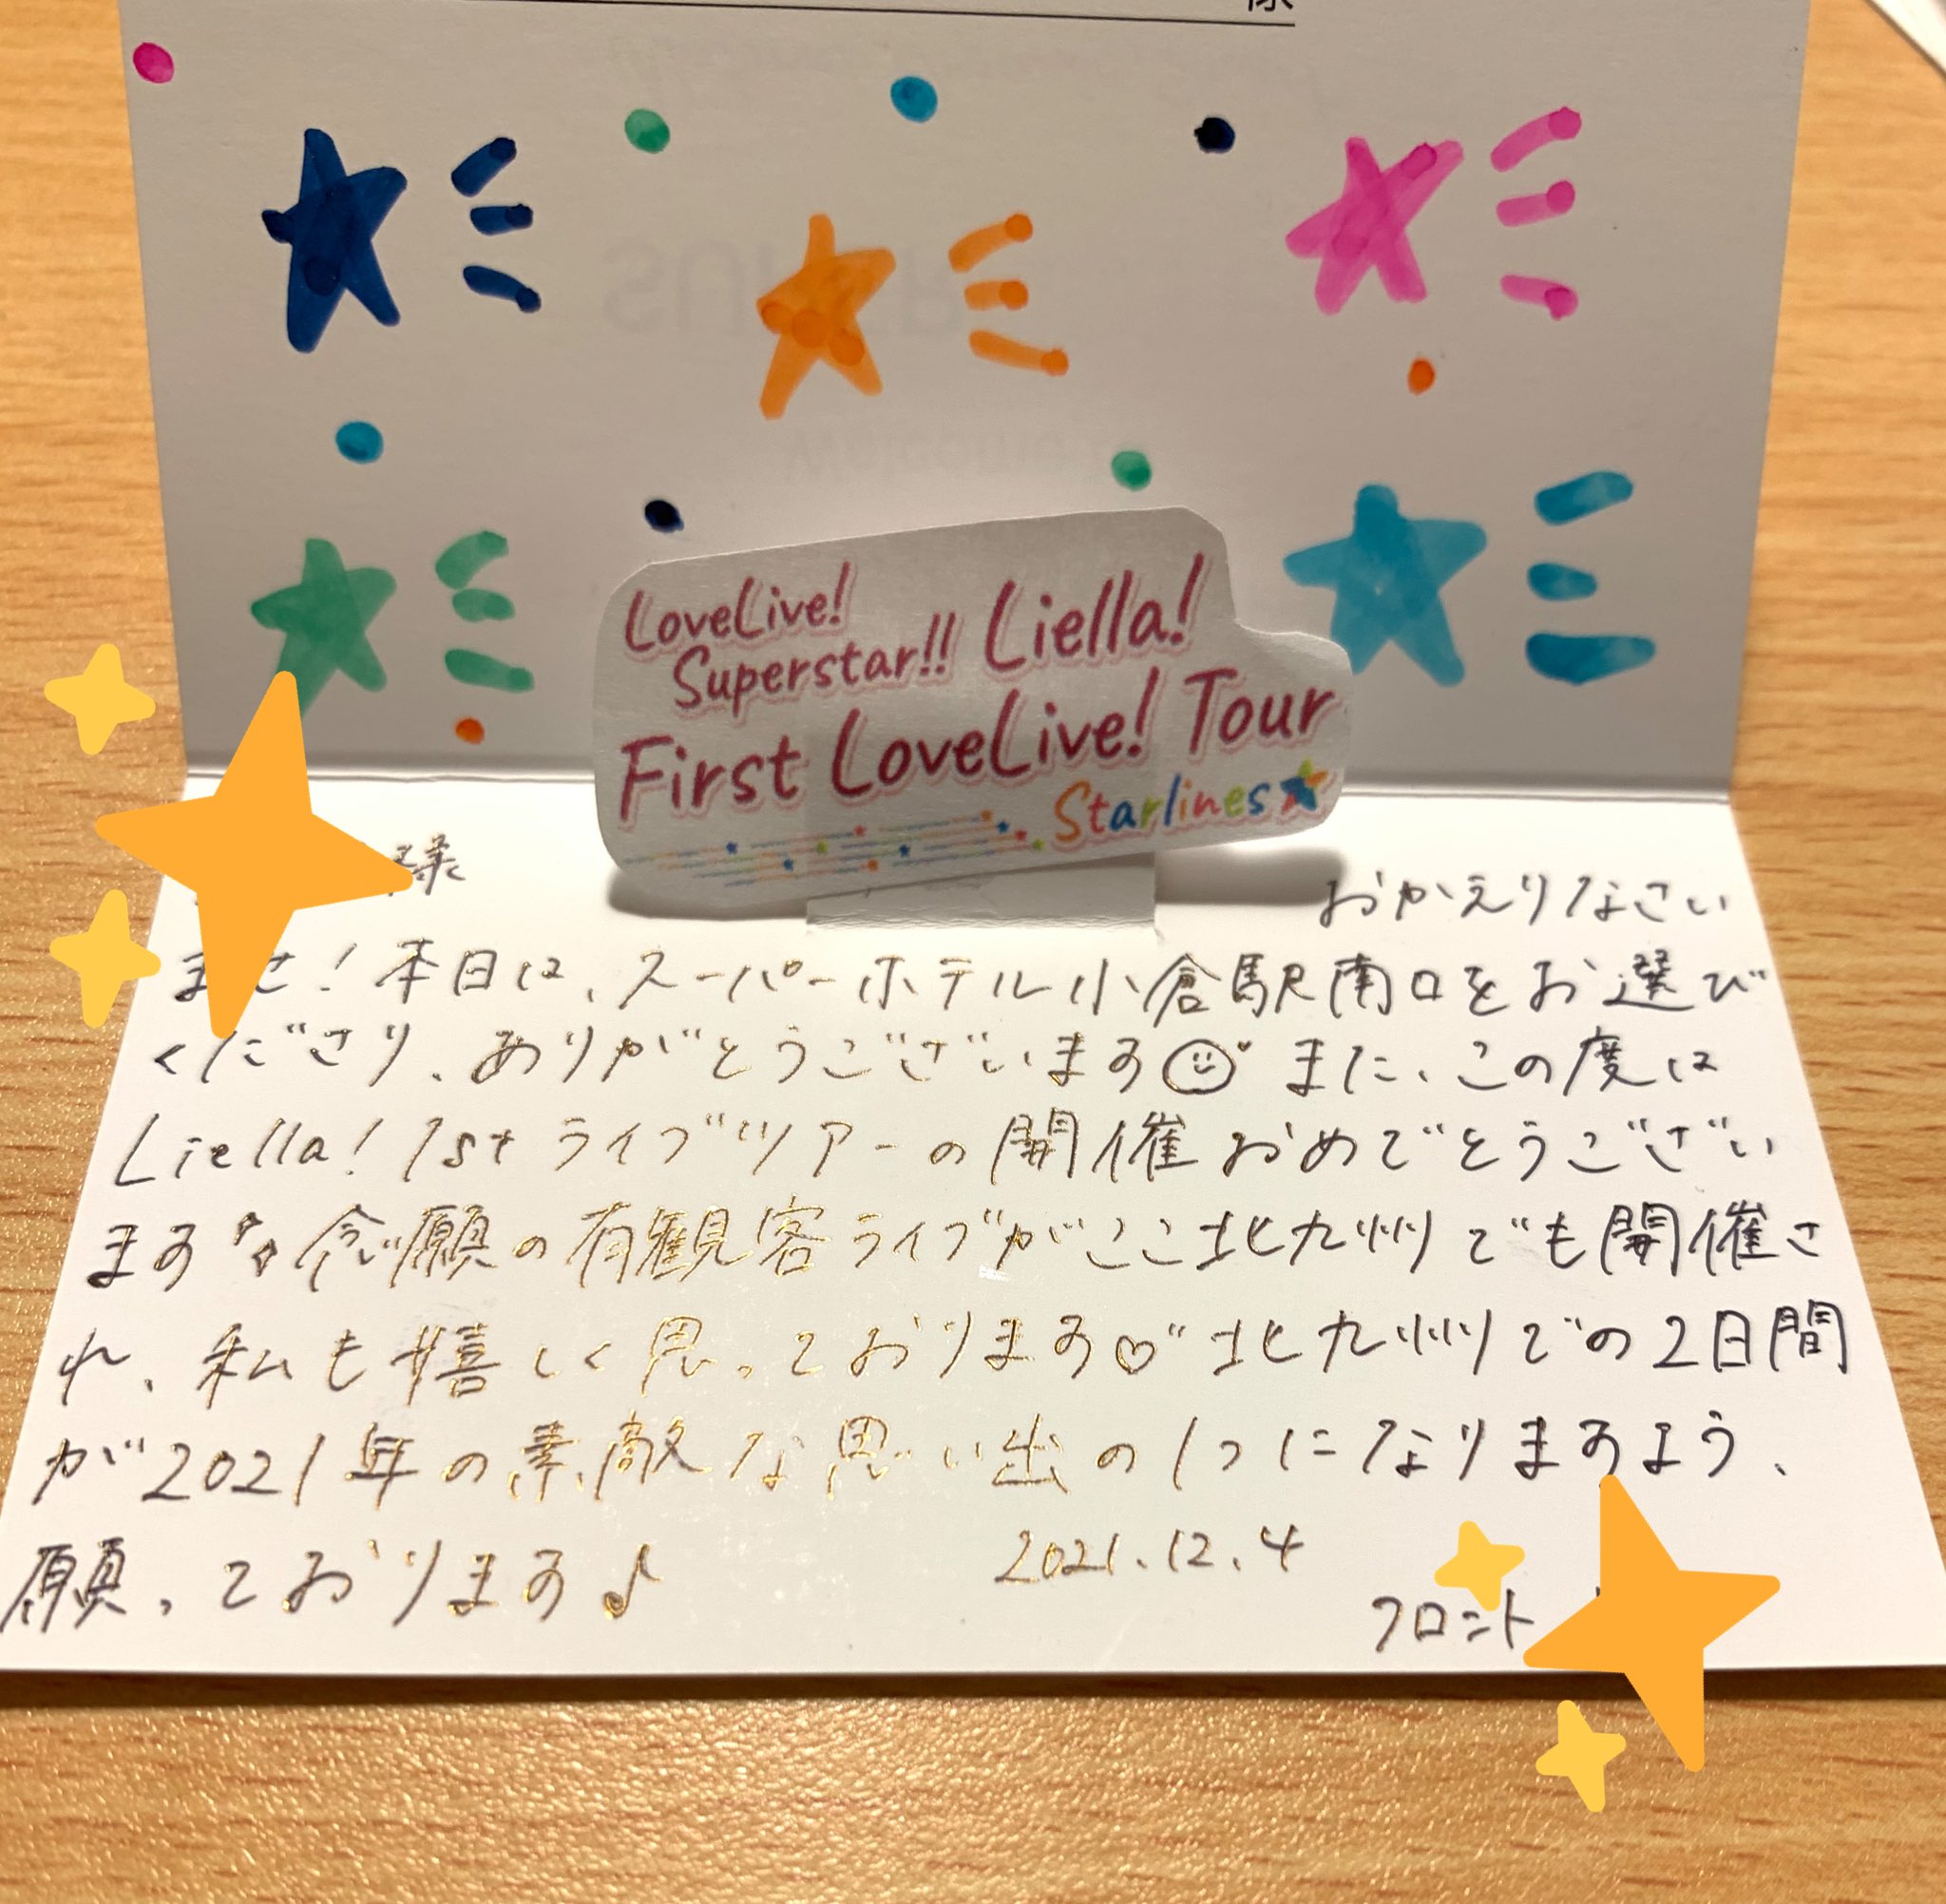 様
LoveLive!
Superstar!! Liella!
First LoveLive! Tour
Starlines
様
おかえりなさい
ませ！本日は、スーパーホテル小倉駅南口をお選び
くださり、ありがとうございます また、この度は
Liella! 1st ライブツアーの開催おめでとうござい
ます 念願の有観客ライブがここ北九州でも開催さ
れ、私も嬉しく思っております♡ 北九州での2日間
が2021年の素敵な思い出の1つになりますよう、
願っております♪
2021.12.4
フロント